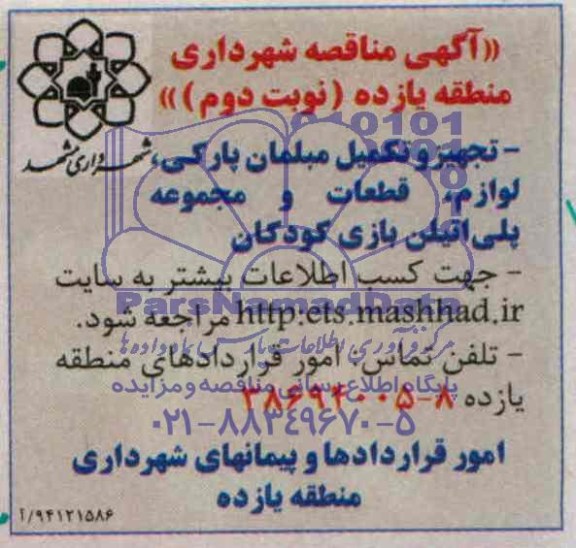 «آگهی مناقصه شهرداری
منطقه یازده (نوبت دوم)»
شهرداری مشهد
- تجهیز و تکمیل مبلمان پارکی،
لوازم، قطعات و مجموعه
پلی‌اتیلن بازی کودکان
- جهت کسب اطلاعات بیشتر به سایت
http:ets.mashhad.ir مراجعه شود.
- تلفن تماس، امور قراردادهای منطقه
یازده ۸-۳۸۶۹۴۰۰۵
امور قراردادها و پیمانهای شهرداری
منطقه یازده
۹۴۱۲۱۵۸۶/آ
ParsNamadData
پایگاه اطلاع رسانی مناقصه و مزایده
۰۲۱-۸۸۳۴۹۶۷۰-۵